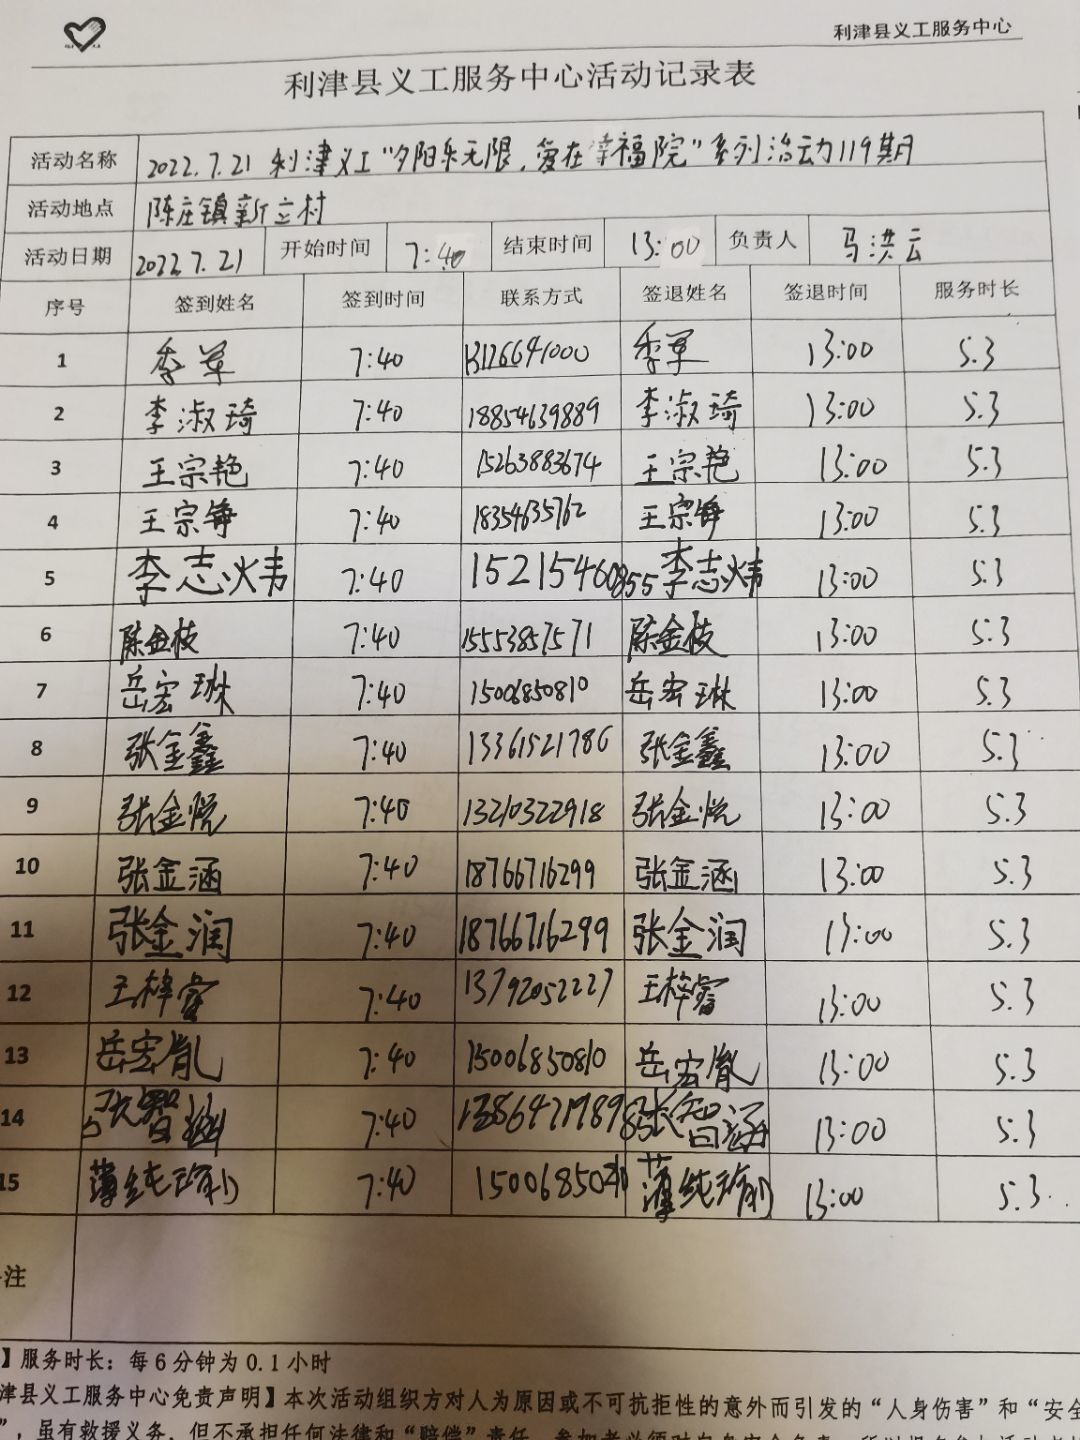 利津县义工服务中心
利津县义工服务中心活动记录表
活动名称 2022.7.21 利津义工"夕阳乐无限,爱在幸福院"系列活动119期
活动地点 陈庄镇新立村
活动日期 2022.7.21 开始时间 7:40 结束时间 13:00 负责人 马洪云
序号 签到姓名 签到时间 联系方式 签退姓名 签退时间 服务时长
1 季军 7:40 13176641000 季军 13:00 5.3
2 李淑琦 7:40 18854639889 李淑琦 13:00 5.3
3 王宗艳 7:40 15263883674 王宗艳 13:00 5.3
4 王宗铮 7:40 18354635762 王宗铮 13:00 5.3
5 李志炜 7:40 15215460855 李志炜 13:00 5.3
6 陈金枝 7:40 15553857571 陈金枝 13:00 5.3
7 岳宏琳 7:40 15006850810 岳宏琳 13:00 5.3
8 张金鑫 7:40 13361521786 张金鑫 13:00 5.3
9 张金悦 7:40 13210322918 张金悦 13:00 5.3
10 张金涵 7:40 18766716299 张金涵 13:00 5.3
11 张金润 7:40 18766716299 张金润 13:00 5.3
12 王梓睿 7:40 13792052227 王梓睿 13:00 5.3
13 岳宏胤 7:40 15006850810 岳宏胤 13:00 5.3
14 张智涵 7:40 13864719898 张智涵 13:00 5.3
15 薄纯 7:40 薄纯 13:00 5.3
注
】服务时长:每6分钟为0.1小时
津县义工服务中心免责声明】本次活动组织方对人为原因或不可抗拒性的意外而引发的“人身伤害”和“安全
”,虽有救援义务,但不承担任何法律和“赔偿”责任